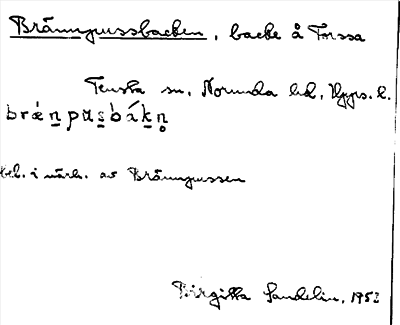 Brännpussbacken, backe å Forssa
Tensta sn, Norunda hd, Upps. l.
bræ̀n̠pus̠bákn̥
bel. i närh. av Brännpussen
Birgitta Sandelin, 1952